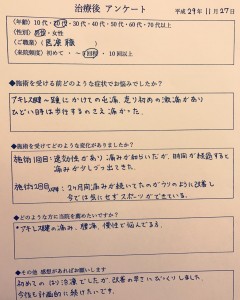 治療後 アンケート
平成29年11月27日
(年齢) 10代・20代・30代・40代・50代・60代・70代以上
(性別) 男性・女性
(ご職業)
(来院頻度) 初めて・5回程・10回以上
◆施術を受ける前どのような症状でお悩みでしたか?
アキレス腱〜踵にかけての毛痛、足り初めの激痛があり
ひどい時は歩行するのさえ痛かった。
◆施術を受けてどのような変化がありましたか?
施術1回目:速効性があり痛みが和らいだが、時間が経過すると
痛みが少しづつ出てきた。
施術2回目 :2ヶ月間痛みが続いてたのがウソのように改善し
今では気にせずスポーツができている。
◆どのような方に当院を薦めたいですか?
・アキレス腱の痛み、腰痛、慢性で悩んでる方。
◆その他 感想があればお願いします
初めてのはり治療でしたが、改善の早さにびっくりしました
今後も計画的に続けたいです。